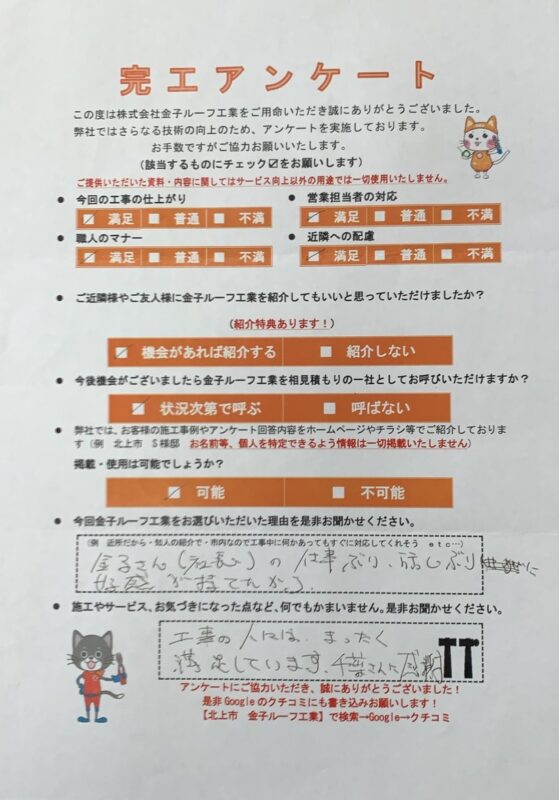 完工アンケート
この度は株式会社金子ルーフ工業をご用命いただき誠にありがとうございました。
弊社ではさらなる技術の向上のため、アンケートを実施しております。
お手数ですがご協力お願いいたします。
（該当するものにチェック☑をお願いします）
ご提供いただいた資料・内容に関してはサービス向上以外の用途では一切使用いたしません。
● 今回の工事の仕上がり
☑ 満足 ■ 普通 ■ 不満
● 営業担当者の対応
☑ 満足 ■ 普通 ■ 不満
● 職人のマナー
☑ 満足 ■ 普通 ■ 不満
● 近隣への配慮
☑ 満足 ■ 普通 ■ 不満
● ご近隣様やご友人様に金子ルーフ工業を紹介してもいいと思っていただけましたか？
（紹介特典あります！）
☑ 機会があれば紹介する ■ 紹介しない
● 今後機会がございましたら金子ルーフ工業を相見積もりの一社としてお呼びいただけますか？
☑ 状況次第で呼ぶ ■ 呼ばない
● 弊社では、お客様の施工事例やアンケート回答内容をホームページやチラシ等でご紹介しておりま
す（例 北上市 S様邸 お名前等、個人を特定できるよう情報は一切掲載いたしません）
掲載・使用は可能でしょうか？
☑ 可能 ■ 不可能
● 今回金子ルーフ工業をお選びいただいた理由を是非お聞かせください。
（例 近所だから・知人の紹介で・市内なので工事中に何かあってもすぐに対応してくれそう etc…）
金子さん（社長）の仕事ぶり、話しぶり
好感が持てたから。
● 施工やサービス、お気づきになった点など、何でもかまいません。是非お聞かせください。
工事の人には、まったく
満足しています。千葉さんに感謝
アンケートにご協力いただき、誠にありがとうございました！
是非Googleのクチコミにも書き込みお願いします！
【北上市 金子ルーフ工業】で検索→Google→クチコミ